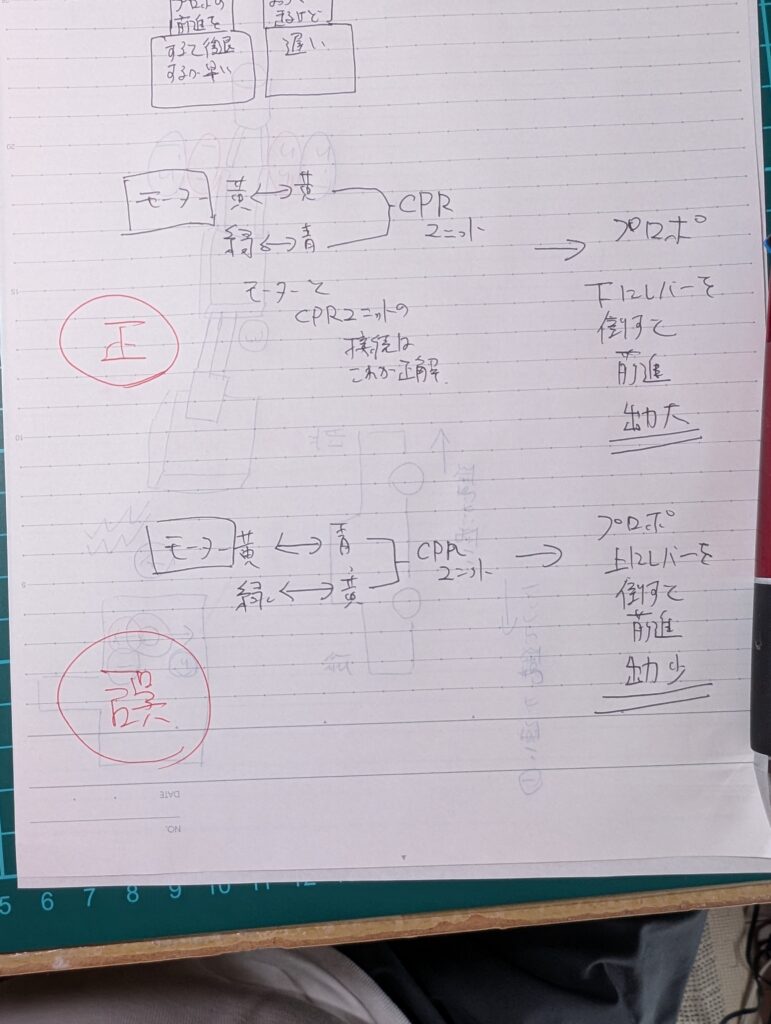 プロポの
前進を
すると後退
するが早い
遅い
モーター 黄↔黄
緑↔青
CPR
ユニット
→ プロポ
下にレバーを
倒すと
前進
出力大
正
モーターと
CPRユニットの
接続は
これが正解
モーター 黄↔青
緑↔黄
CPR
ユニット
→ プロポ
上にレバーを
倒すと
前進
出力少
誤
DATE
NO.
20
15
10
5
5 6 7 8 9 10 11 12